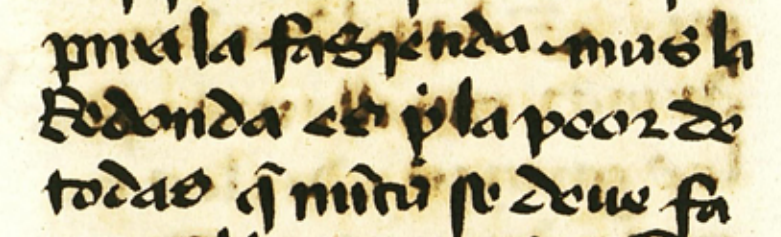 pma la fasienda. mas la
Redonda es ẏ la peor de
todas q̄ nūcȳ se deue fa